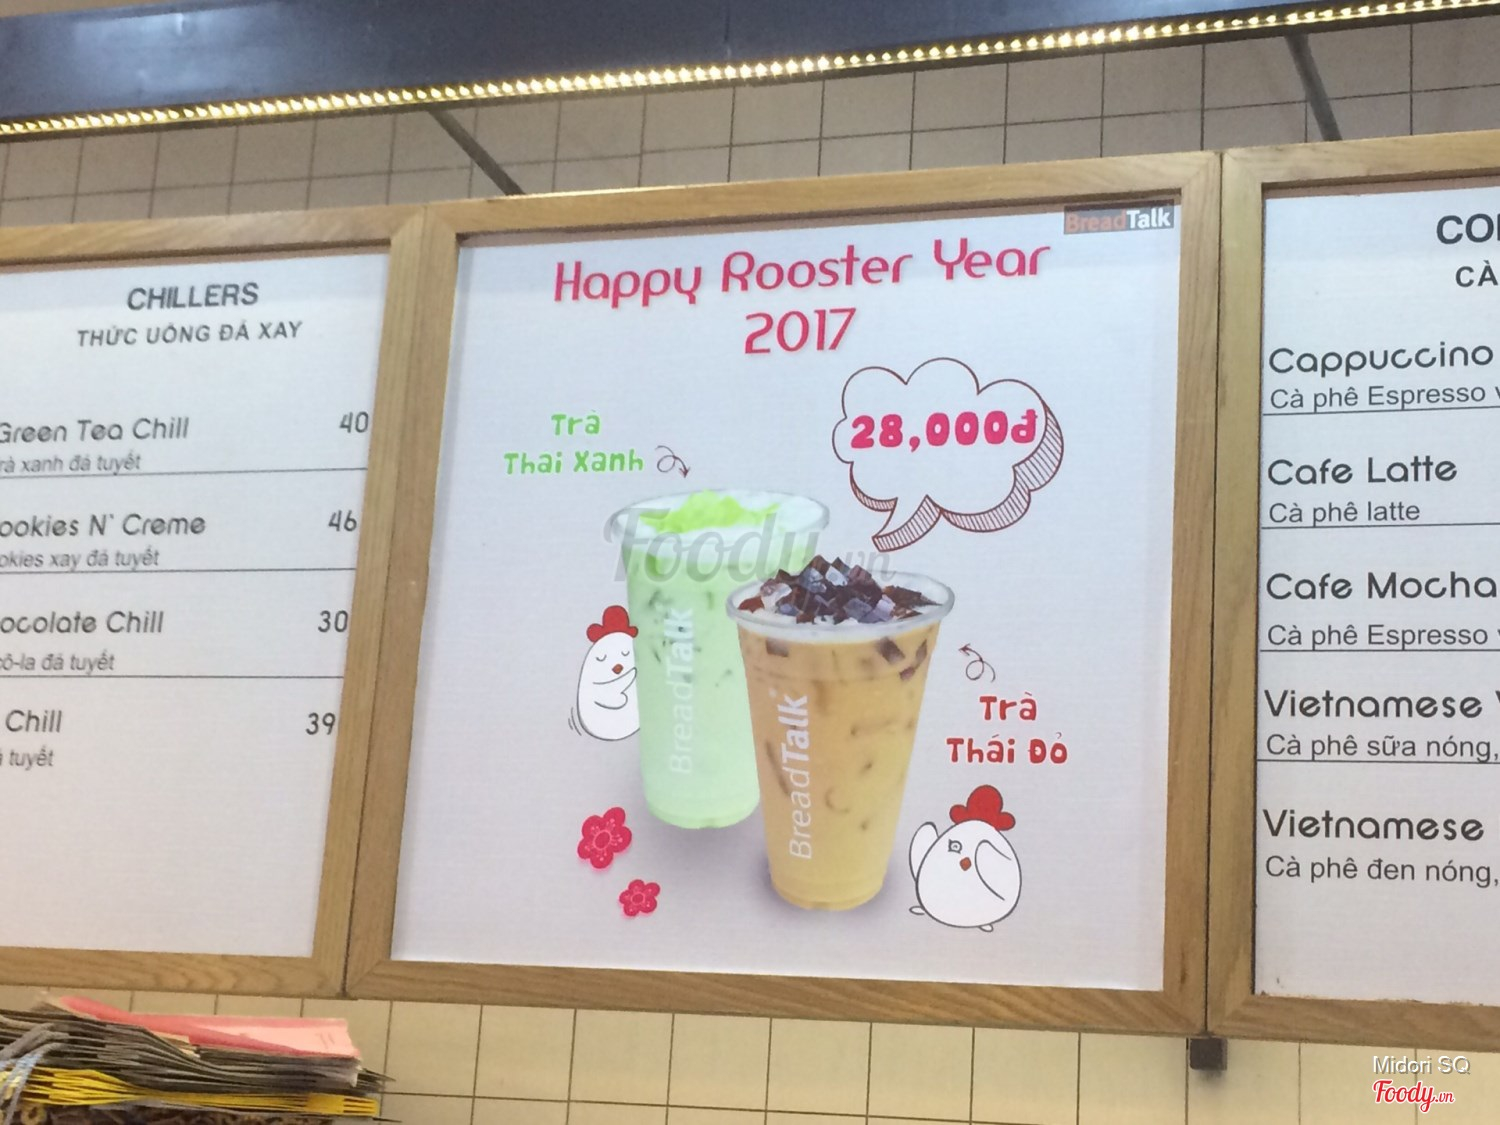 CHILLERS
THỨC UỐNG ĐÁ XAY
Green Tea Chill 40
xanh đá tuyết
N' Creme 46
xay đá tuyết
Chill 30
đá tuyết
Chill 39
tuyết
BreadTalk
Happy Rooster Year
2017
28,000đ
Trà
Thai Xanh
BreadTalk
BreadTalk
Trà
Thái Đỏ
Foody.vn
Cappuccino
Cà phê Espresso
Cafe Latte
Cà phê latte
Cafe Mocha
Cà phê Espresso
Vietnamese
Cà phê sữa nóng,
Vietnamese
Cà phê đen nóng,
Midori SQ
Foody.vn